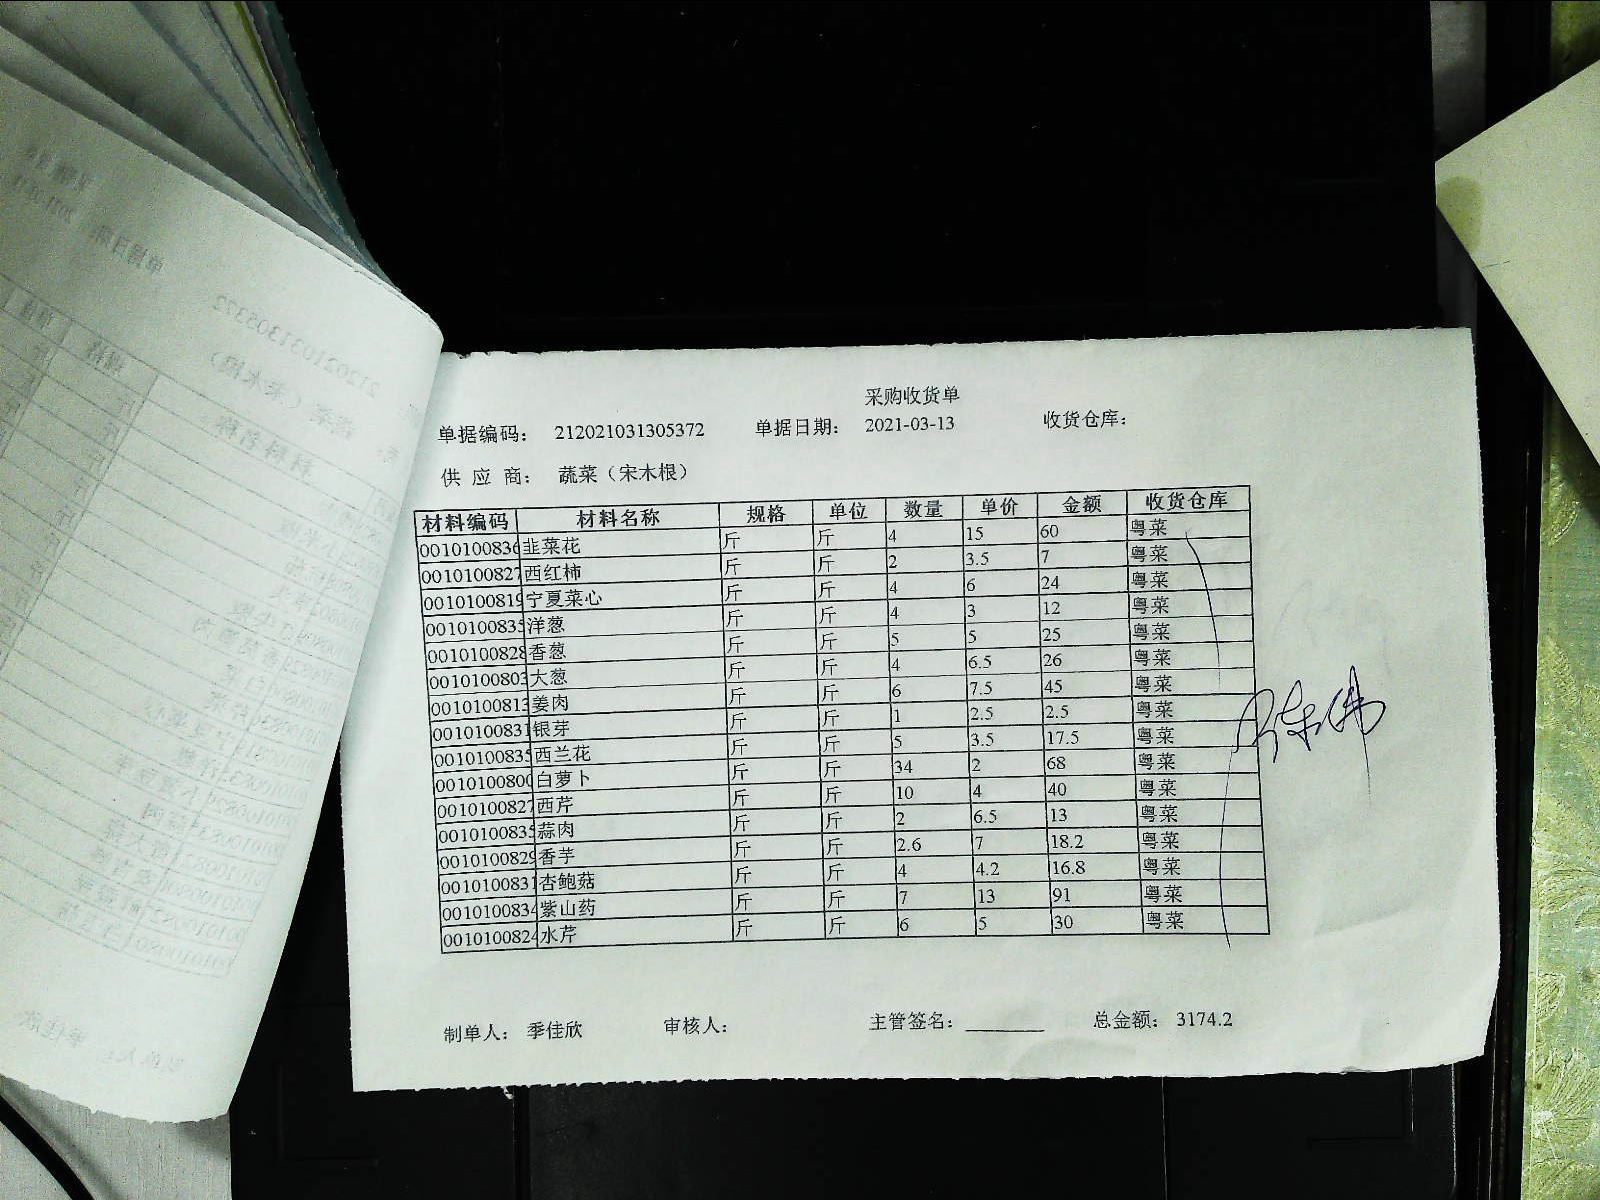 采购收货单
单据编码： 212021031305372 单据日期： 2021-03-13 收货仓库：
供 应 商： 蔬菜（宋木根）
材料编码 材料名称 规格 单位 数量 单价 金额 收货仓库
0010100836 韭菜花 斤 斤 4 15 60 粤菜
0010100827 西红柿 斤 斤 2 3.5 7 粤菜
0010100819 宁夏菜心 斤 斤 4 6 24 粤菜
0010100835 洋葱 斤 斤 4 3 12 粤菜
0010100828 香葱 斤 斤 5 5 25 粤菜
0010100803 大葱 斤 斤 4 6.5 26 粤菜
0010100813 姜肉 斤 斤 6 7.5 45 粤菜
0010100831 银芽 斤 斤 1 2.5 2.5 粤菜
0010100835 西兰花 斤 斤 5 3.5 17.5 粤菜
0010100800 白萝卜 斤 斤 34 2 68 粤菜
0010100827 西芹 斤 斤 10 4 40 粤菜
0010100835 蒜肉 斤 斤 2 6.5 13 粤菜
0010100829 香芋 斤 斤 2.6 7 18.2 粤菜
0010100831 杏鲍菇 斤 斤 4 4.2 16.8 粤菜
0010100834 紫山药 斤 斤 7 13 91 粤菜
0010100824 水芹 斤 斤 6 5 30 粤菜
制单人： 季佳欣 审核人： 主管签名： 总金额： 3174.2